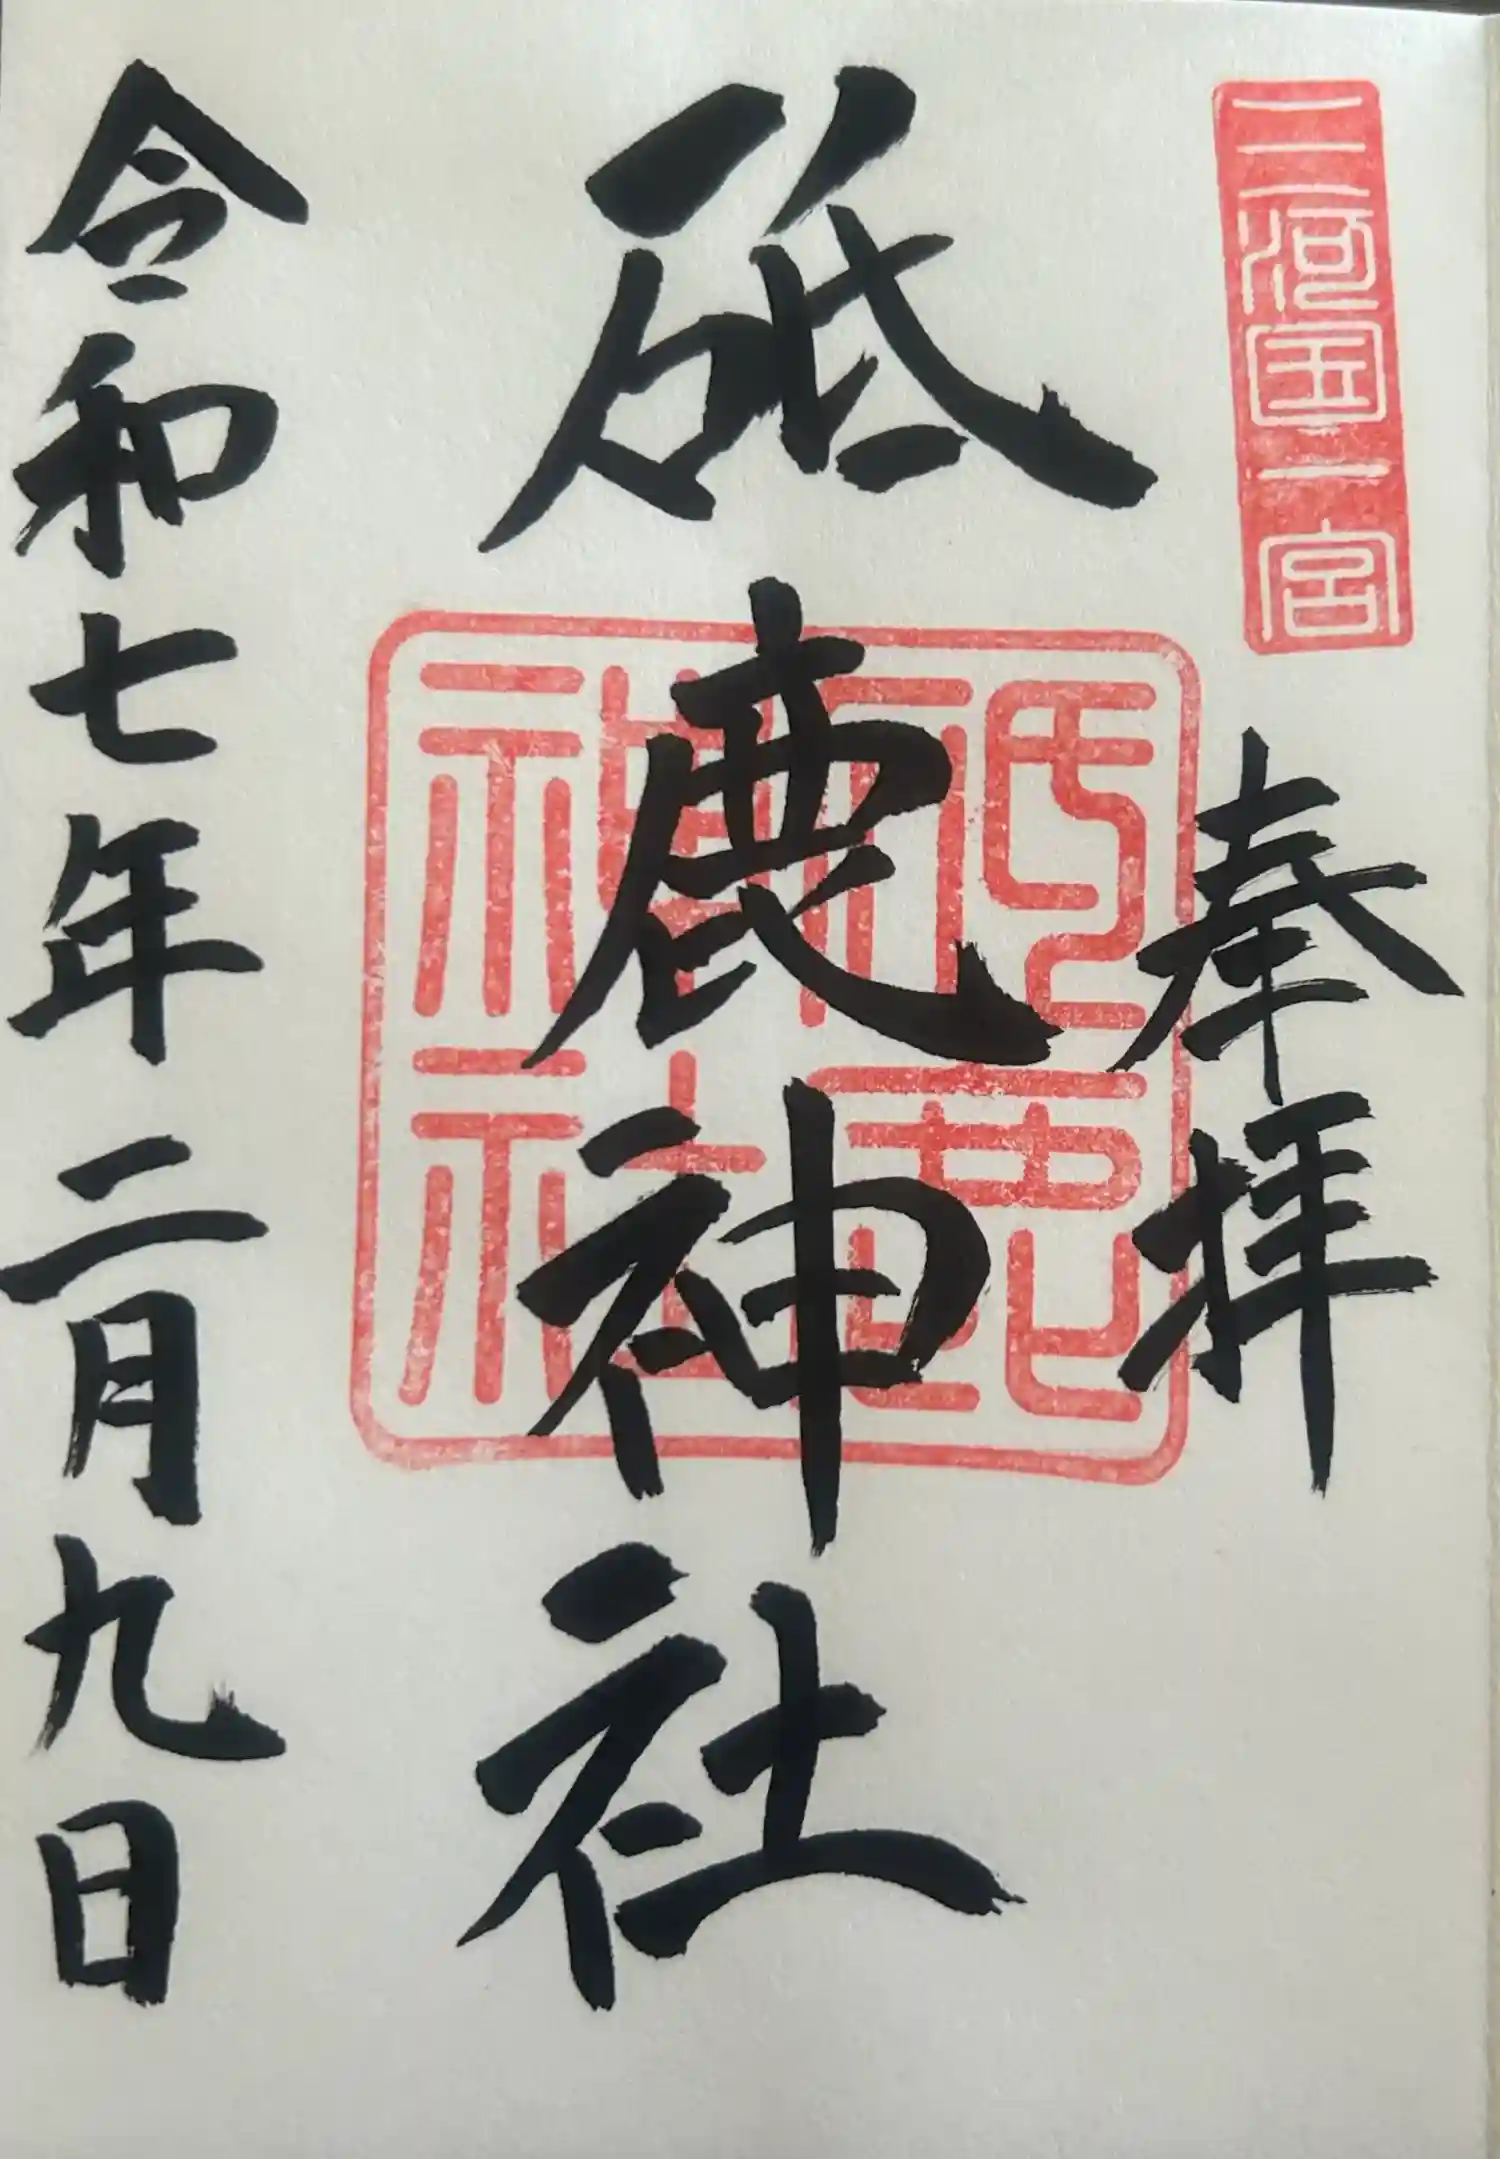 三河国一宮
奉拝
砥鹿神社
砥鹿神社
令和七年二月九日